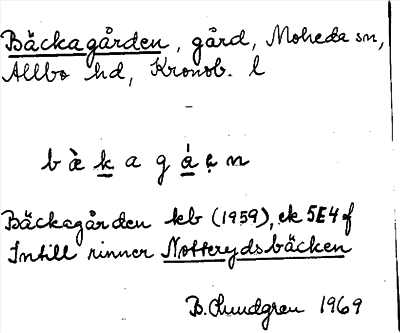 Bäckagården, gård, Moheda sn,
Allbo hd, Kronob. l
b ä̀ k a g á ṇ n
Bäckagården kb (1959), ek 5E4f
Intill rinner Notterydsbäcken
B. Lundgren 1969